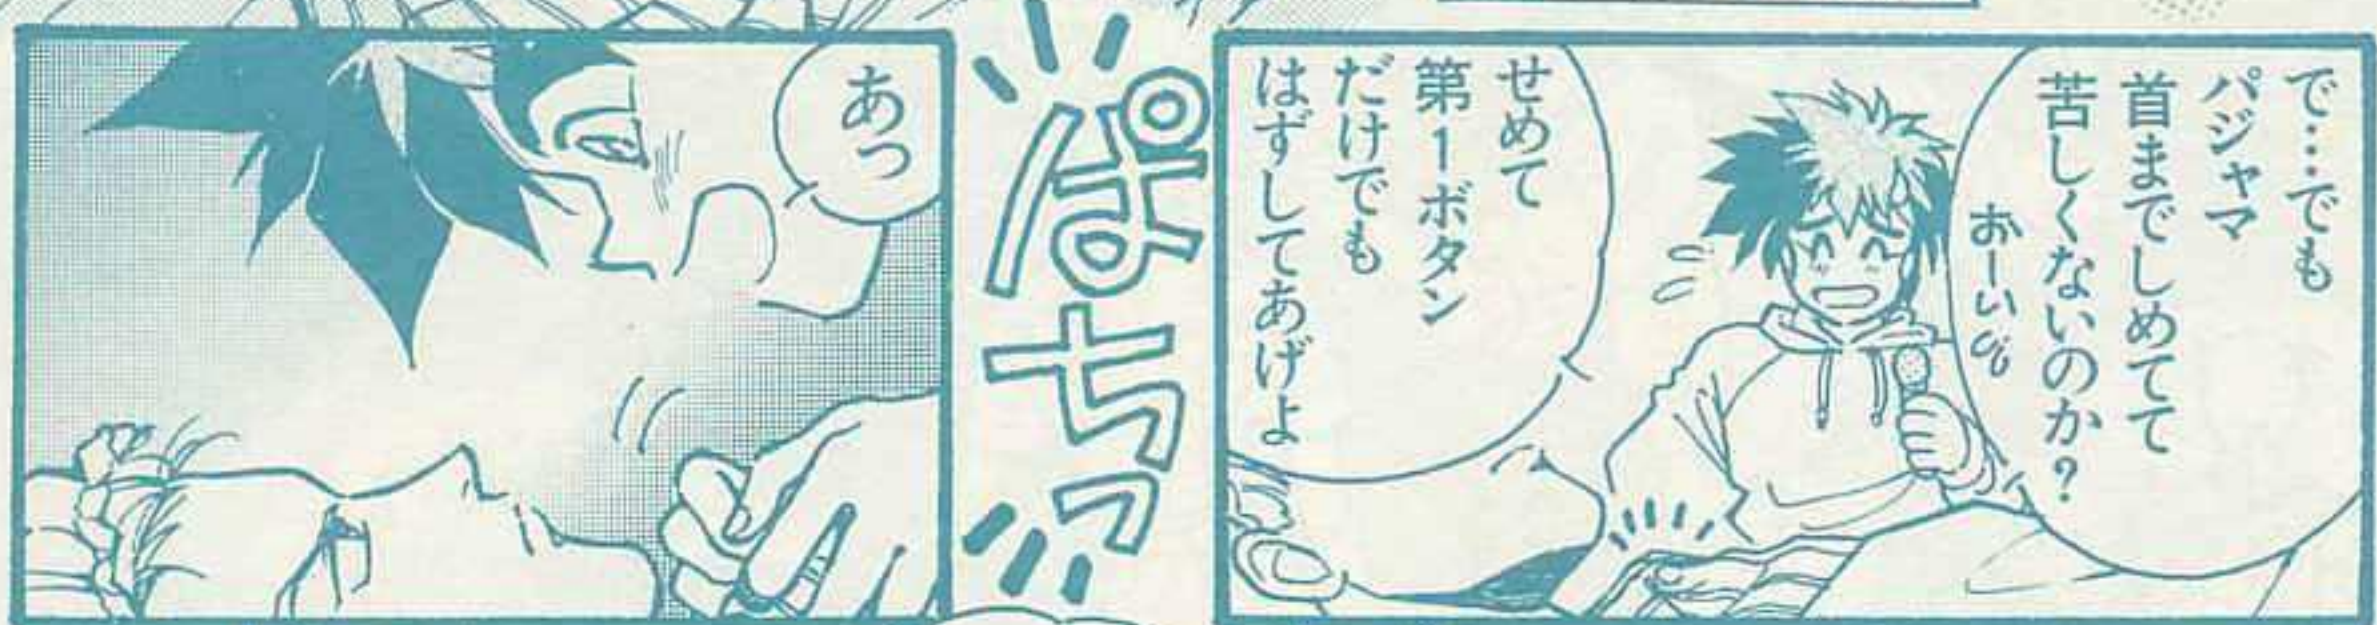 で…でも
パジャマ
首までしめてて
苦しくないのか?
おーい
せめて
第1ボタン
だけでも
はずしてあげよ
ぱちっ
あっ